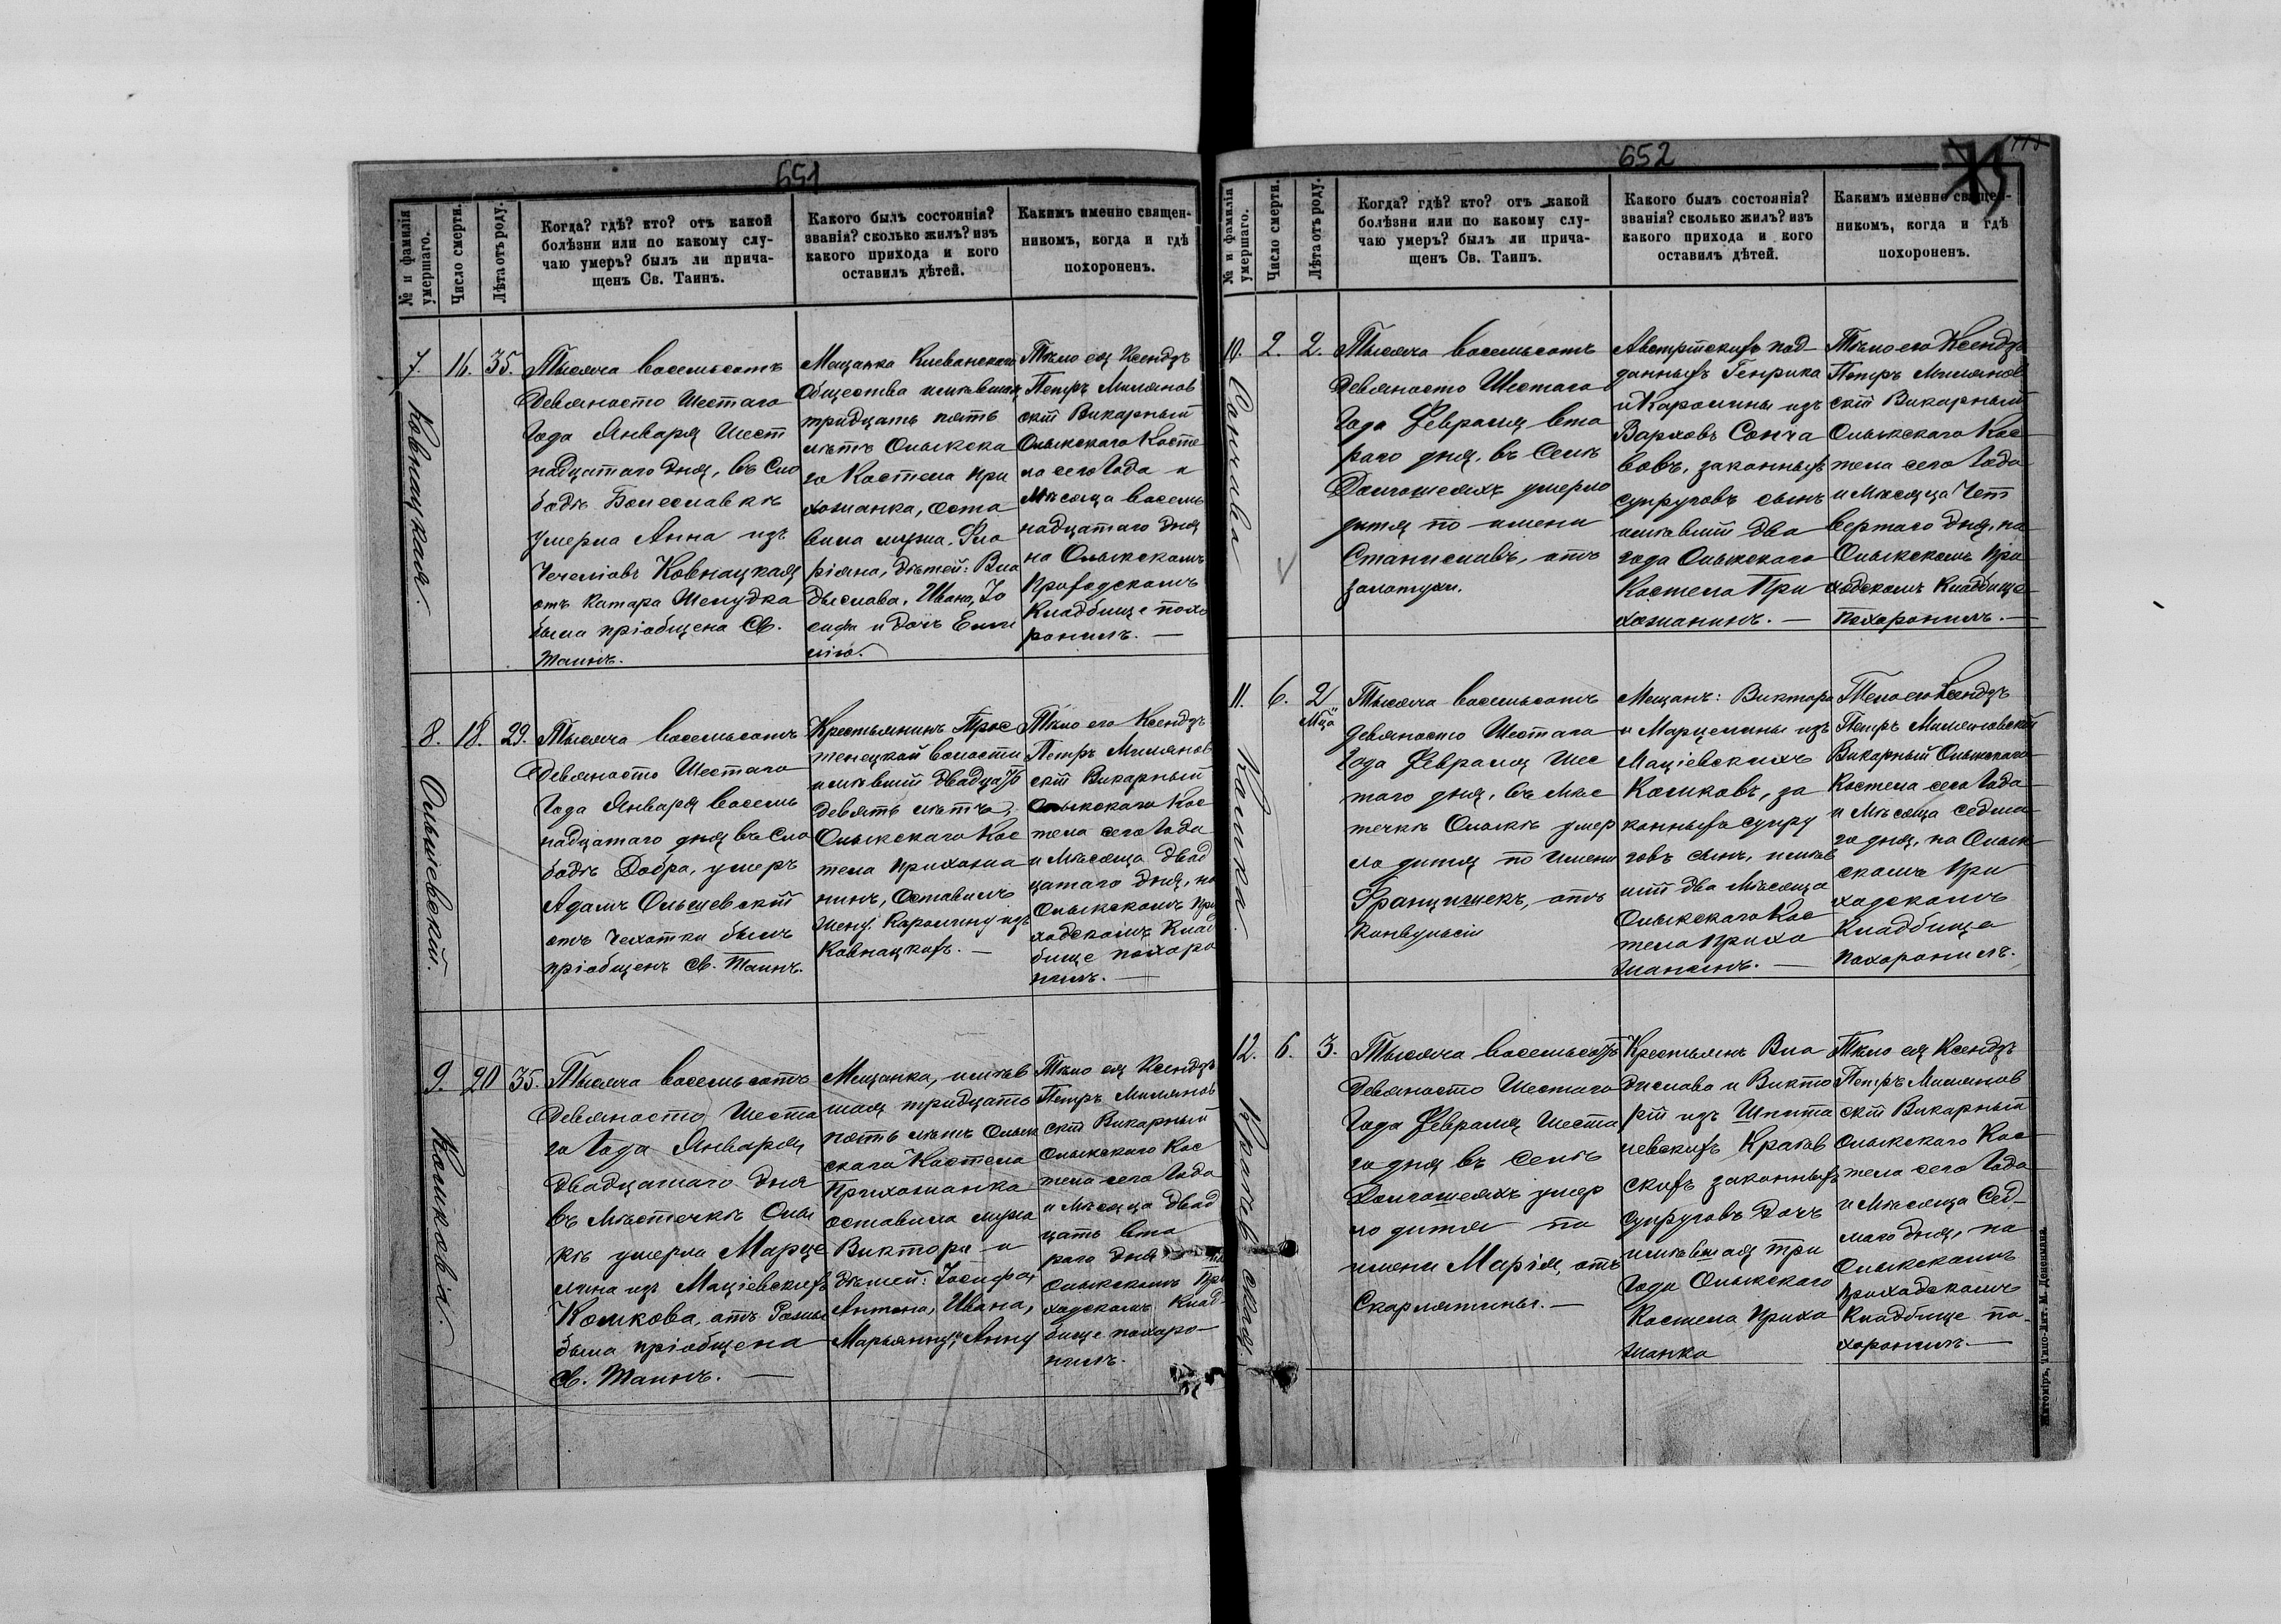 651
№ и фамилія умершаго.
Число смерти.
Лѣта отъ роду.
Когда? гдѣ? кто? отъ какой
болѣзни или по какому слу-
чаю умеръ? былъ ли прича-
щенъ Св. Таинъ.
Какого былъ состоянія?
званія? сколько жилъ? изъ
какого прихода и кого
оставилъ дѣтей.
Какимъ именно священ-
никомъ, когда и гдѣ
похороненъ.
7.
Ковнацкая.
16.
35.
Тысяча восемьсотъ
Девяносто Шестаго
Года Января Шест
надцатаго дня, въ Сло
бодѣ Болеславкѣ
умерла Анна изъ
Ковнацкая
отъ Катара Желудка
была пріобщена Св.
Таинъ.
Мещанка Клеванскаго
Общества имѣвшая
тридцать пять
лѣтъ Олыкска
го Костела при
хожанка, оста
вила мужа Фло
ріяна, дѣтей: Вла
дыслава, Ивана, Іо
сифа и дочь Еми
лію.
Тѣло ея Ксендзъ
Петръ Милянов
скій Викарный
Олыкскаго Косте
ла сего Года и
Мѣсяца восемь
надцатаго дня
на Олыкскомъ
Приходскомъ
Кладбище похо
ронилъ. —
8.
Ольшевскій.
18.
29.
Тысяча восемьсотъ
Девяносто Шестаго
Года Января восемь
надцатаго дня въ Сло
бодѣ Добра, умеръ
Адамъ Ольшевскій
отъ Чехотки былъ
пріобщенъ Св. Таинъ.
Крестьянинъ Трос
тенецкой волости
имѣвшій двадцать
девять лѣтъ,
Олыкскаго Кос
тела прихожа
нинъ, Оставилъ
жену Каролину изъ
Ковнацкихъ. —
Тѣло его Ксендзъ
Петръ Милянов
скій Викарный
Олыкскаго Кос
тела сего Года
и Мѣсяца двад
цатаго дня, на
Олыкскомъ при
ходскомъ Клад
бище похоро
нилъ. —
9.
Комкова.
20
35.
Тысяча восемьсотъ
Девяносто Шеста
го Года Января
двадцатаго дня
въ Мѣстечкѣ Олы
кѣ умерла Марце
лина изъ Маціевскихъ
Комкова, отъ
была пріобщена
Св. Таинъ. —
Мещанка, имѣв
шая тридцать
пять лѣтъ Олык
скаго Костела
Прихожанка
оставила мужа
Виктора и
дѣтей: Іосифа,
Антона, Ивана,
Марьянну, Анну
Тѣло ея Ксендзъ
Петръ Милянов
скій Викарный
Олыкскаго Кос
тела сего Года
и Мѣсяца двад
цать вто
раго дня на
Олыкскомъ При
ходскомъ Клад-
бище похоро-
нилъ.
652
№ и фамилія умершаго.
Число смерти.
Лѣта отъ роду.
Когда? гдѣ? кто? отъ какой
болѣзни или по какому слу-
чаю умеръ? былъ ли прича-
щенъ Св. Таинъ.
Какого былъ состоянія?
званія? сколько жилъ? изъ
какого прихода и кого
оставилъ дѣтей.
Какимъ именно священ-
никомъ, когда и гдѣ
похороненъ.
10.
Сончава
2.
2.
Тысяча восемьсотъ
Девяносто Шестаго
Года Февраля вто
раго дня, въ Селѣ
Долгошеяхъ умерло
дитя по имени
Станиславъ, отъ
золотухи.
Австрійскихъ под
данныхъ Генрика
и Каролины изъ
Варховъ Сонча
вовъ, законныхъ
супруговъ сынъ
имѣвшій два
года Олыкскаго
Костела При
хожанинъ. —
Тѣло его Ксендзъ
Петръ Милянов
скій Викарный
Олыкскаго Кос
тела сего Года
и Мѣсяца Чет
вертаго дня, на
Олыкскомъ При
ходскомъ Кладбище
Похоронилъ. —
11.
Комка.
6.
2
Мца
Тысяча восемьсотъ
девяносто Шестаго
Года Февраля Шес
таго дня, въ Мѣс
течкѣ Олыкѣ умер
ло дитя по имени
Францишекъ, отъ
Конвульсіи
Мещанъ: Виктора
и Марцелины изъ
Маціевскихъ
Комковъ, за
конныхъ супру
говъ сынъ, имѣв
шій два Мѣсяца
Олыкскаго Кос
тела Прихо
жанинъ. —
Тело его Ксендзъ
Петръ Миляновскій
Викарный Олыкскаго
Костела сего Года
и Мѣсяца седма
го дня, на Олык
скомъ При
ходскомъ
Кладбище
похоронилъ.
12.
6.
3.
Тысяча восемьсотъ
Девяносто Шестаго
Года Февраля Шеста
го дня въ Селѣ
Долгошеяхъ умер
ло дитя по
имени Марія, отъ
Скарлятины. —
Крестьянъ Вла
дислава и Викто
ріи изъ Шпита
левскихъ Краев
скихъ законныхъ
Супруговъ Дочь
имѣвшая три
Года Олыкскаго
Костела Прихо
жанка
Тѣло ея Ксендзъ
Петръ Милянов
скій Викарный
Олыкскаго Кос
тела сего Года
и Мѣсяца Сед-
маго дня, на
Олыкскомъ
Приходскомъ
Кладбище по-
хоронилъ. —
Житоміръ, Типо-Лит. М. Дененмана.